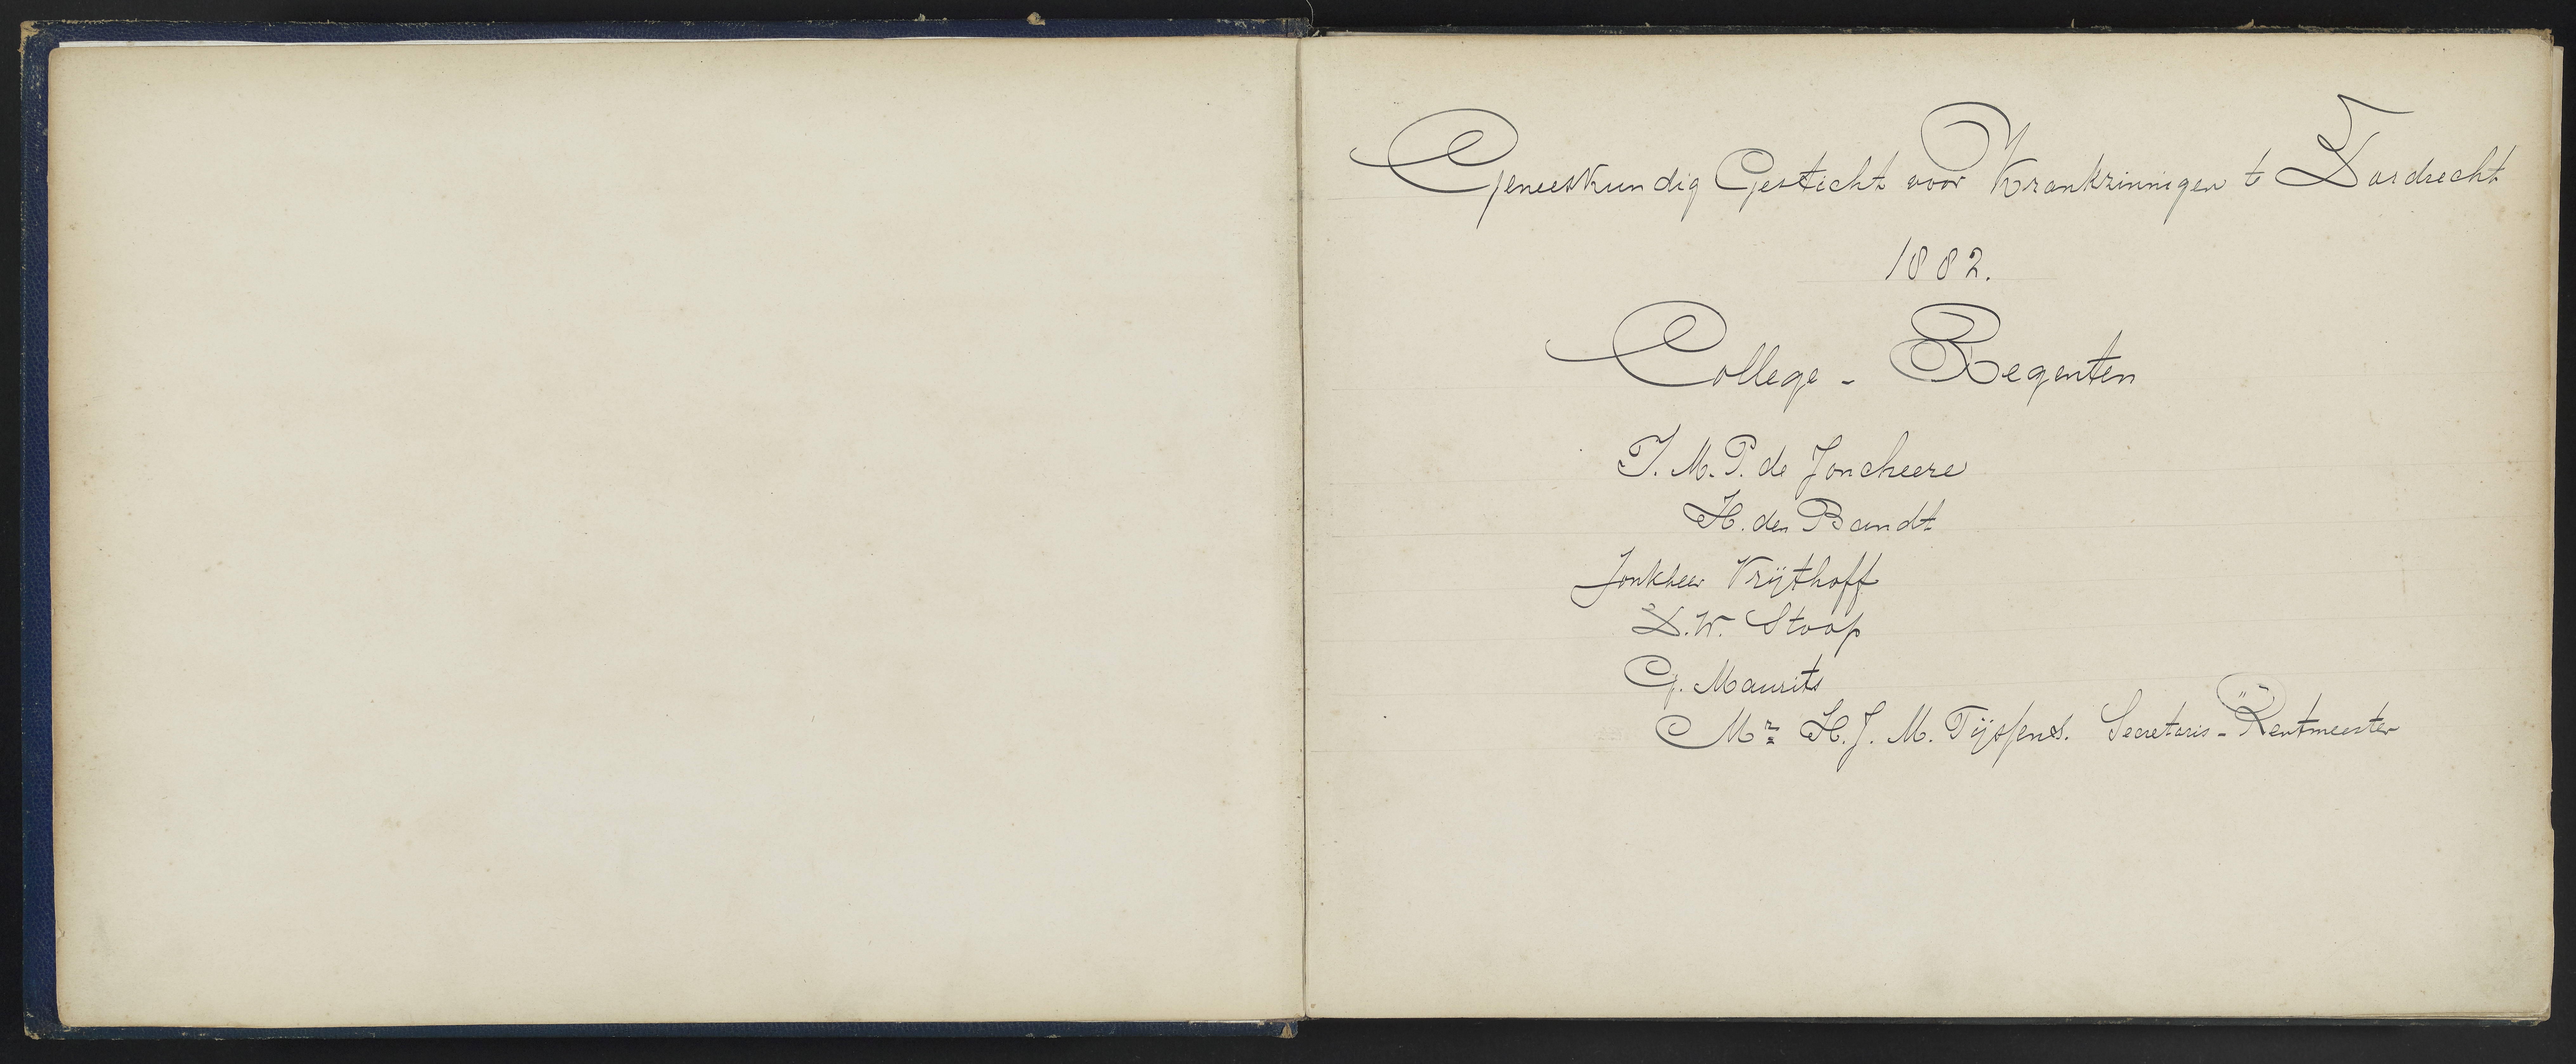 Geneeskundig Gesticht voor Krankzinnigen te Dordrecht
1882.
College - Regenten
J. M. P. de Joncheere
H. den Bandt
Jonkheer Vrijthoff
D. W. Stoop
G. Maurits
Mr H. J. M. Tijssens. Secretaris - Rentmeester